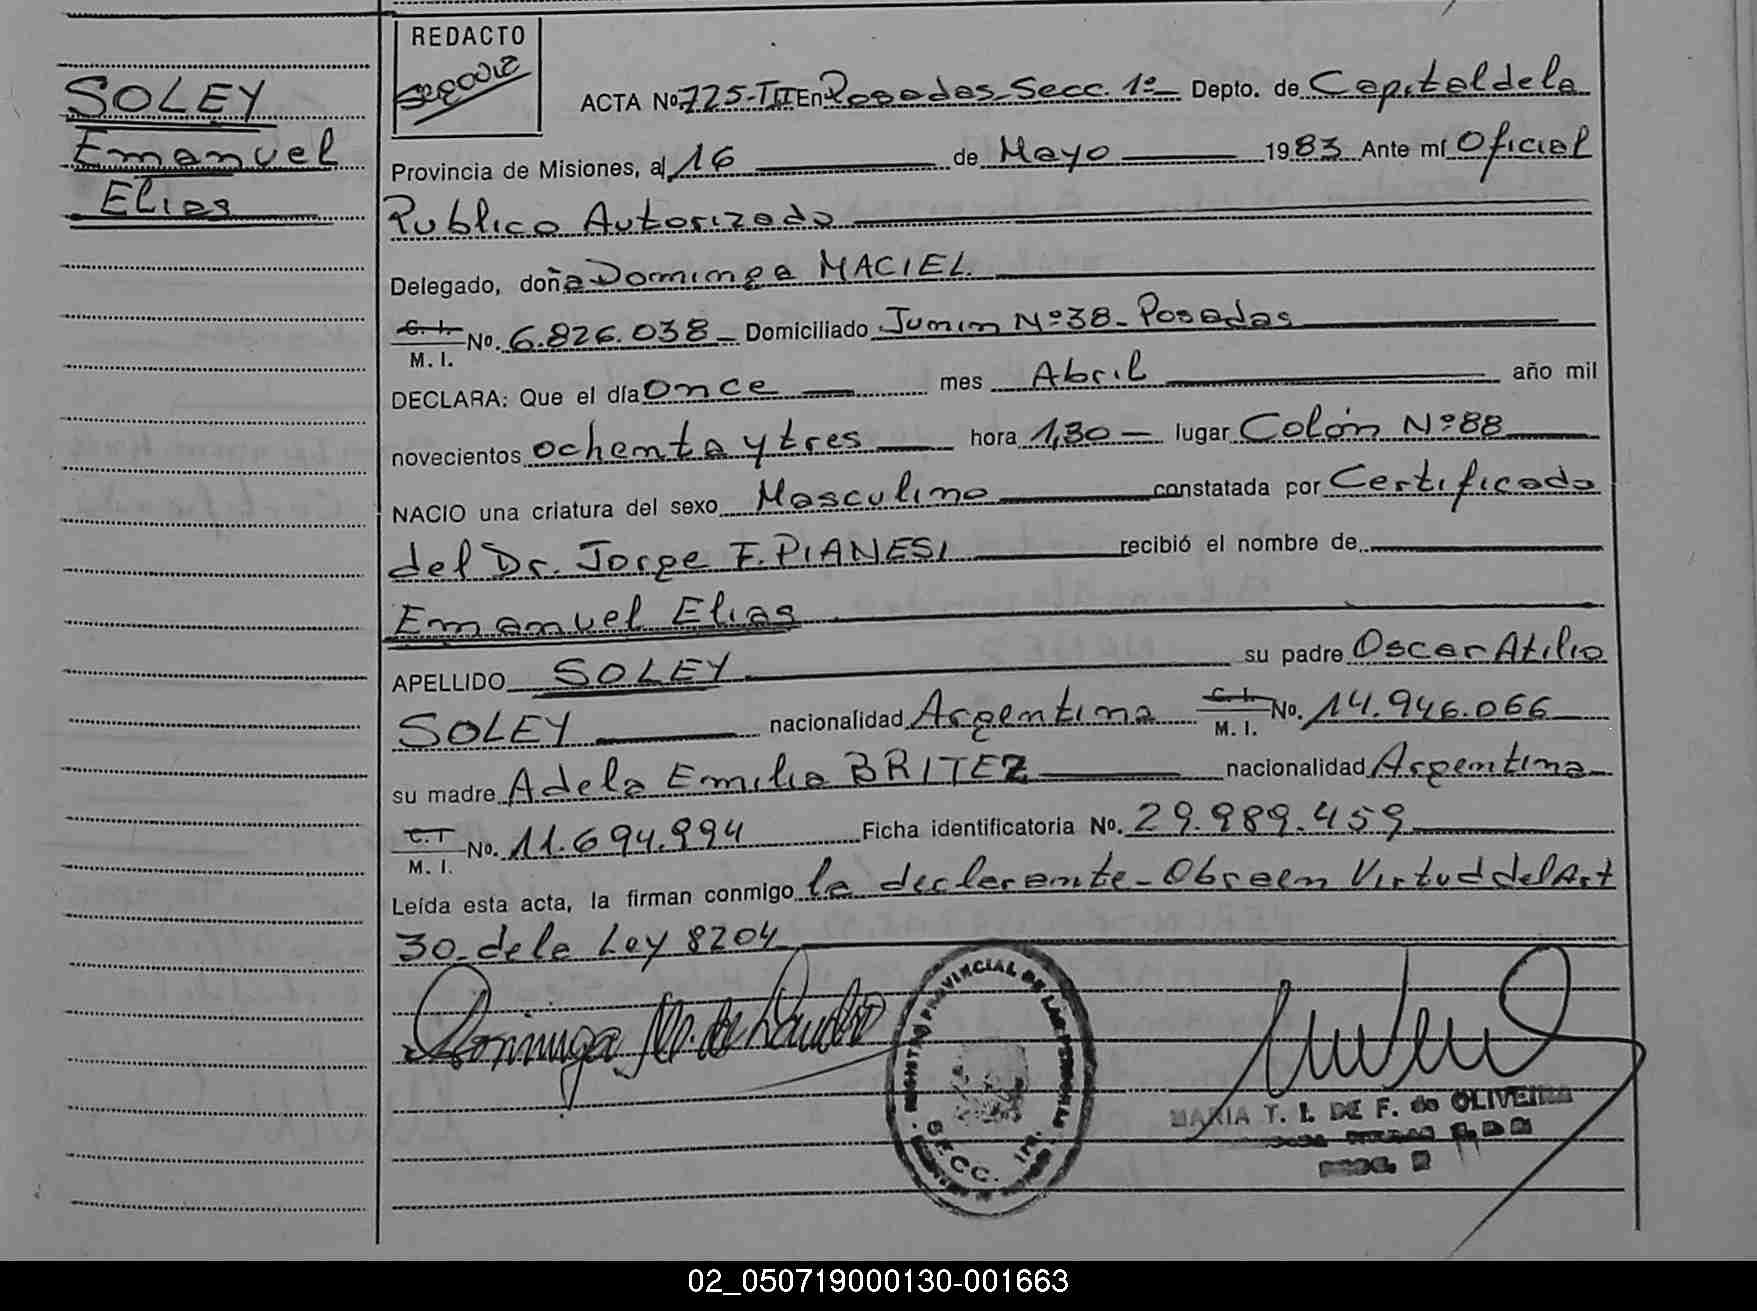 SOLEY
Emanuel
Elias
REDACTO
ACTA No 725-III En Posadas Secc. 1º Depto. de Capital de la
Provincia de Misiones, al 16 de Mayo 1983 Ante mí Oficial
Publico Autorizado
Delegado, doña Dominga MACIEL
C. I.
M. I.
No. 6.826.038 Domiciliado Junin Nº 38 - Posadas
DECLARA: Que el día once mes Abril año mil
novecientos ochenta y tres hora 1,30 lugar Colón Nº 88
NACIO una criatura del sexo Masculino constatada por Certificado
del Dr. Jorge F. PIANESI recibió el nombre de
Emanuel Elias
APELLIDO SOLEY su padre Oscar Atilio
SOLEY nacionalidad Argentina C. I. M. I. No. 14.946.066
su madre Adela Emilia BRITEZ nacionalidad Argentina
C. I.
M. I.
No. 11.694.994 Ficha identificatoria No. 29.989.459
Leída esta acta, la firman conmigo la declarante - Obra en Virtud del Art
30 de la Ley 8204
Dominga M. de
PROVINCIAL DE LAS PERSONAS
SECC. 1ra.
MARIA T. I. DE F. de OLIVEIRA
02_050719000130-001663